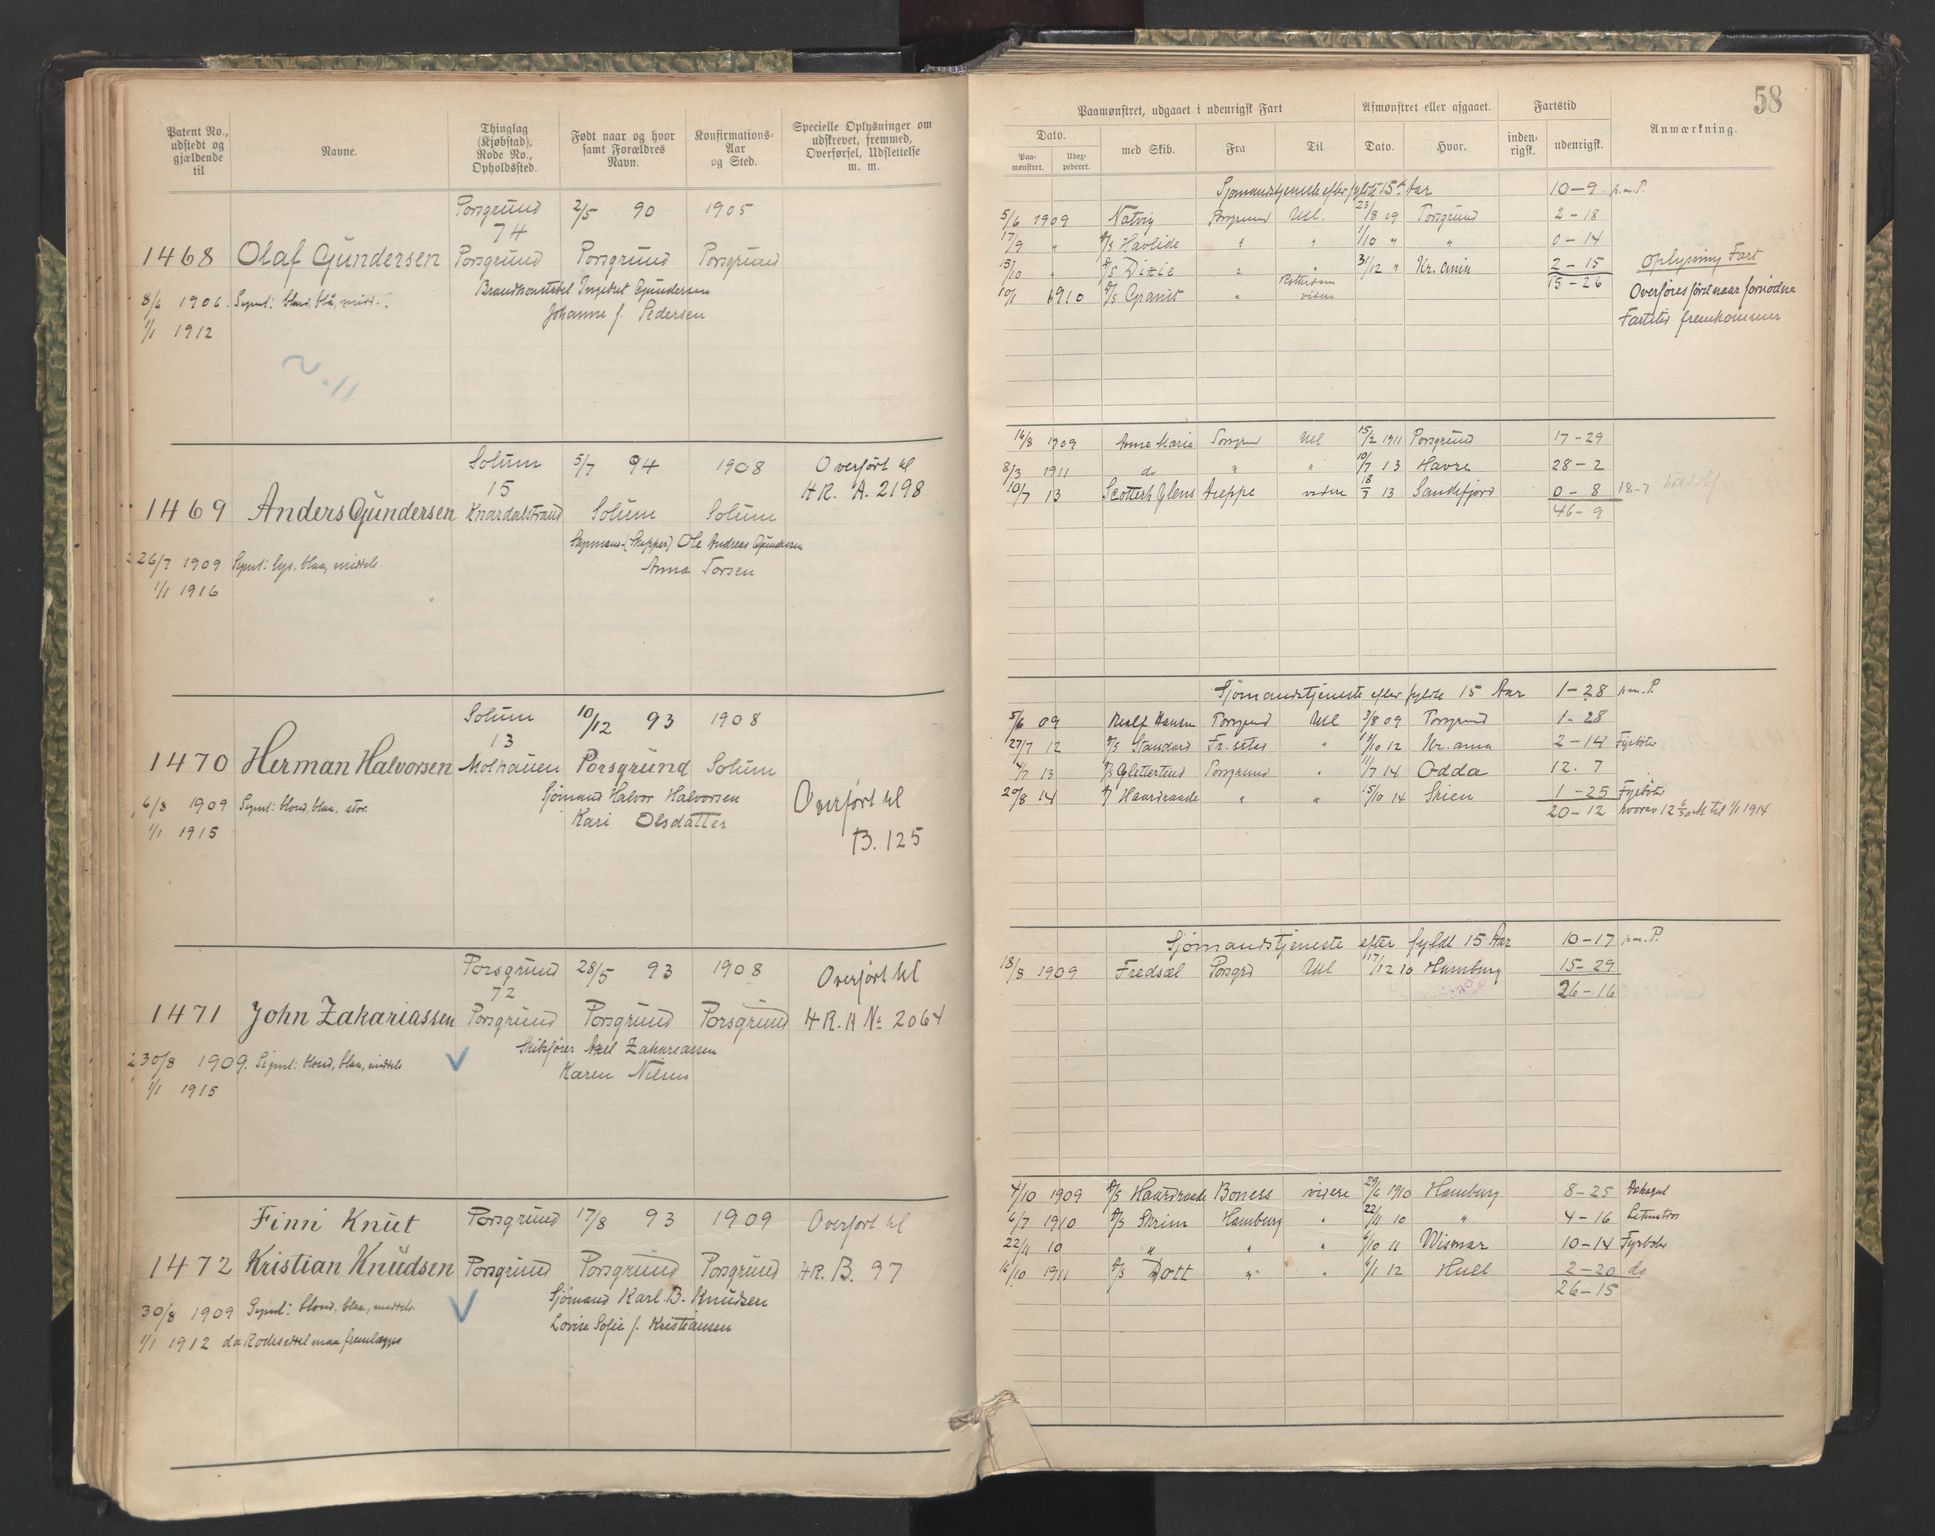 58
Patent No., udstedt og gjældende til
Navne.
Thinglag (Kjøbstad), Rode No., Opholdssted.
Født naar og hvor samt Forældres Navn.
Konfirmations-Aar og Sted.
Specielle Oplysninger om udskrevet, fremmed, Overførsel, Udslettelse m. m.
Paamønstret, udgaaet i udenrigsk Fart
Afmønstret eller afgaaet.
Fartstid
Anmærkning.
Dato.
Paa-mønstret.
Udex-pederet.
med Skib.
Fra
Til
Dato.
Hvor.
inden-rigsk.
udenrigsk.
Porsgrund 2/5 90 1905
74
1468 Olaf Gundersen Porsgrund Porsgrund Porsgrund
8/6 1906. Signl: blond, blå, midd.
Brandkonstabel Ingebret Gundersen
1/1 1912
Johanne f. Pedersen
N. 11
Sjømandstjeneste efter fyldte 15 Aar 10-9 p.m.P.
5/6 1909 Natvig Porsgrund Udl. 23/8 09 Porsgrund 2-18
17/9 " D/S Havlide " " 1/10 " " 0-14
15/10 " D/S Dixie " " 31/12 " Kr.ania 2-15
10/1 1910 D/S Granit " Rotterdam videre 15-26
Oplysning Fart
Overføres først naar fornødne
Fartstid fremkommer
Solum 5/7 94 1908 Overført til
15 HR. A. 2198
1469 Anders Gundersen Knardalstrand Solum Solum
Styrmand (Skipper) Ole Andreas Gundersen
26/7 1909 Signl: lys, blaa, middels.
Anna Torsen
1/1 1916
16/8 1909 Anna Maria Porsgrund Udl 15/2 1911 Porsgrund 17-29
8/3 1911 do " " 10/7 13 Havre 28-2
10/7 13 Scottish Glens Dieppe videre 18/7 13 Sandefjord 0-8 18-7
46-9
Solum 10/12 93 1908
13
1470 Herman Halvorsen Molhauen Porsgrund Solum
6/8 1909 Signl: blond, blaa, stor.
Sjømand Halvor Halvorsen
1/1 1915
Kari Olsdatter
Overført til
B. 125
Sjömandstjeneste efter fyldte 15 Aar 1-28 p.m.P.
5/6 09 Hansen Porsgrund Udl 3/8 09 Porsgrund 1-28
27/7 12 D/S Standard Fr.stad " 11/10 12 Kr.ania 2-14 Fyrbøter
4/7 13 D/S Glittertind Porsgrund " 11/7 14 Odda 12.7
20/8 14 Haardraade " " 15/10 14 Skien 1-25 Fyrbøter
20-12 hvorav 12 til 1/1 1914
Porsgrund 28/5 93 1908 Overført til
72
1471 John Zakariassen Porsgrund Porsgrund Porsgrund HR. A No. 2064
30/8 1909. Signl: blond, blaa, middels
Skibsfører Axel Zakariassen
1/1 1915
Karen Nilsen
Sjömandstjeneste efter fyldt 15 Aar 10-17 p.m.P.
18/8 1909 Fredsæl Porsgrd Udl 17/12 10 Hamburg 15-29
26-16
Finn Knut Porsgrund 17/8 93 1909 Overført til
1472 Kristian Knudsen Porsgrund Porsgrund Porsgrund HR. B. 97
30/8 1909 Signl: blond, blaa, middels.
Sjømand Karl B. Knudsen
1/1 1912 da Rodeseddel maa fremlægges
Lovise Sofie f. Kristiansen
4/10 1909 D/S Haardraade Boness videre 29/6 1910 Hamburg 8-25
6/7 1910 D/S Skrim Hamburg " 22/11 10 " 4-16 Letmatros
22/11 10 " " " 6/10 11 Wismar 10-14 Fyrbøter
16/10 1911 D/S Dott " " 6/1 12 Hull 2-20 do
26-15